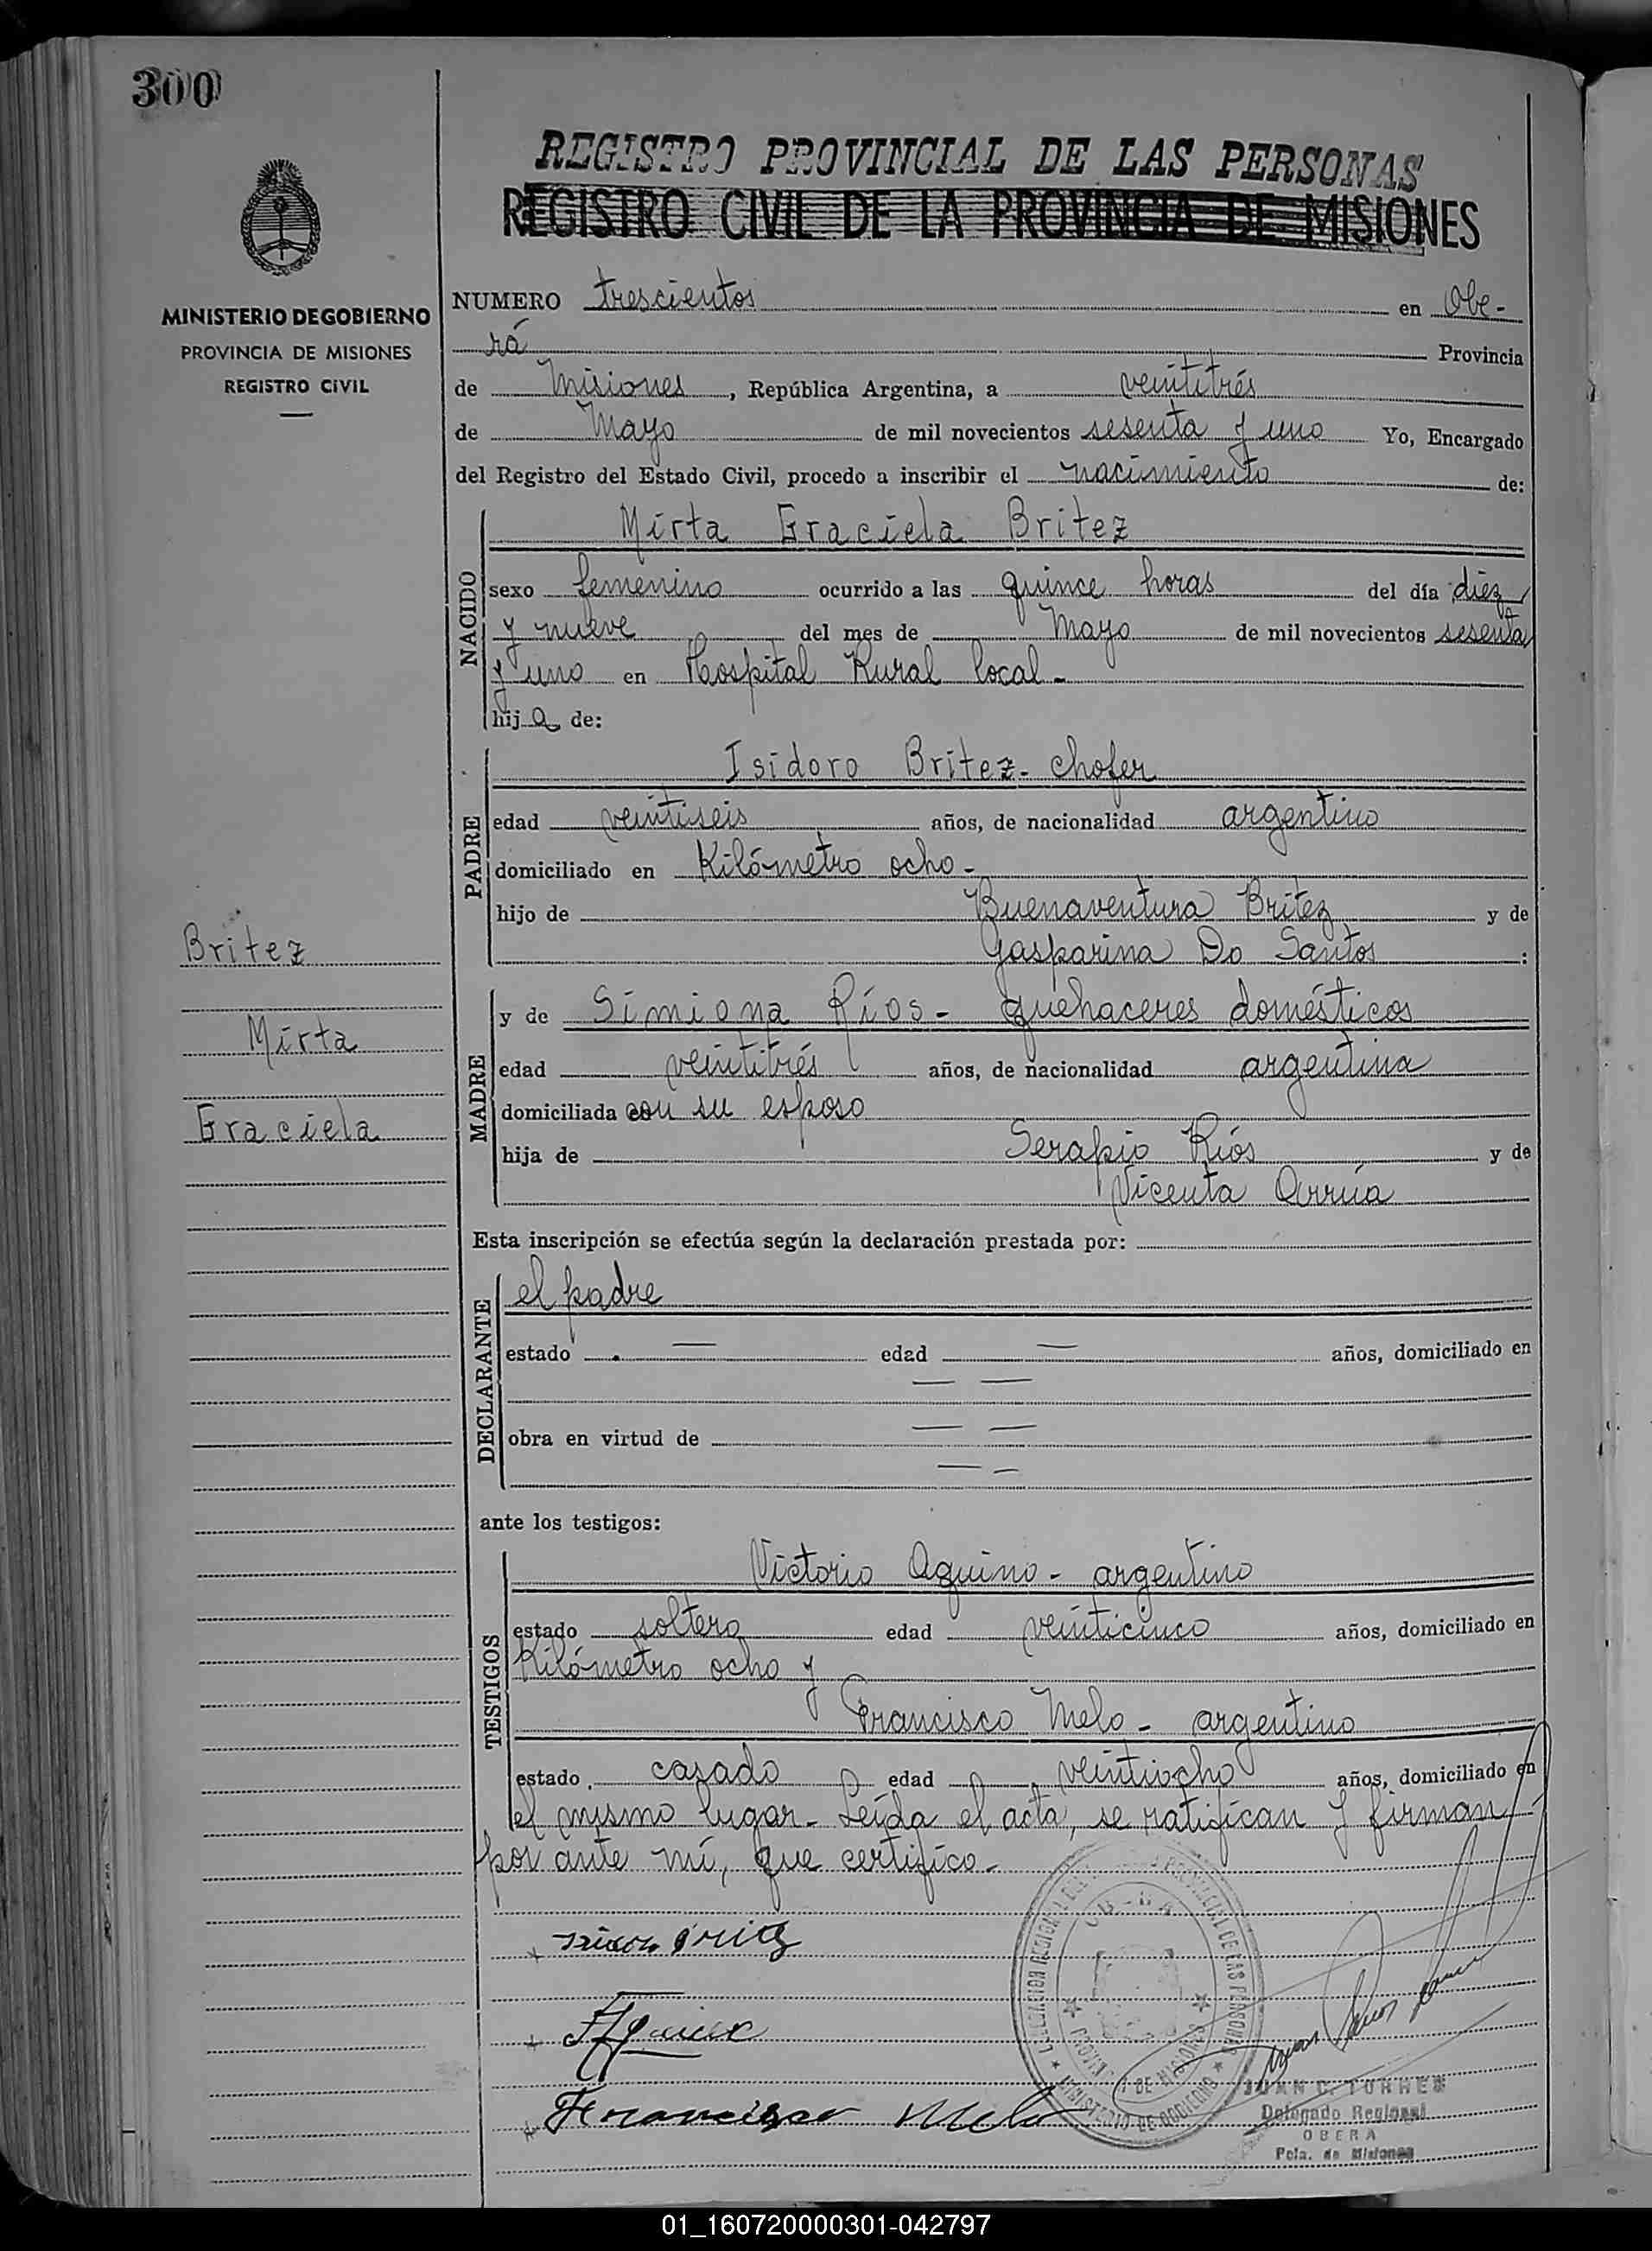 300
REGISTRO PROVINCIAL DE LAS PERSONAS
REGISTRO CIVIL DE LA PROVINCIA DE MISIONES
MINISTERIO DE GOBIERNO
PROVINCIA DE MISIONES
REGISTRO CIVIL
NUMERO trescientos en Obe-
rá Provincia
de Misiones, República Argentina, a veintitrés
de Mayo de mil novecientos sesenta y uno Yo, Encargado
del Registro del Estado Civil, procedo a inscribir el nacimiento de:
NACIDO
Mirta Graciela Britez
sexo femenino ocurrido a las quince horas del día diez
y nueve del mes de Mayo de mil novecientos sesenta
y uno en Hospital Rural local-
hija de:
PADRE
Isidoro Britez- chofer
edad veintiseis años, de nacionalidad argentino
domiciliado en Kilómetro ocho-
hijo de Buenaventura Britez y de
Gasparina Do Santos :
Britez
Mirta
Graciela
MADRE
y de Simiona Ríos- quehaceres domésticos
edad veintitrés años, de nacionalidad argentina
domiciliada con su esposo
hija de Serapio Ríos y de
Vicenta Arrúa
Esta inscripción se efectúa según la declaración prestada por:
DECLARANTE
el padre
estado — edad — años, domiciliado en
— —
obra en virtud de — —
— —
ante los testigos:
TESTIGOS
Victorio Aquino- argentino
estado soltero edad veinticinco años, domiciliado en
Kilómetro ocho y
Francisco Melo- argentino
estado casado edad veintiocho años, domiciliado en
el mismo lugar- Leída el acta, se ratifican y firman
por ante mí, que certifico-
Francisco Melo
PROVINCIAL DE LAS PERSONAS
PROVINCIA DE MISIONES
MINISTERIO DE GOBIERNO
JUAN C. TORRES
Delegado Regional
OBERA
Pcia. de Misiones
01_160720000301-042797